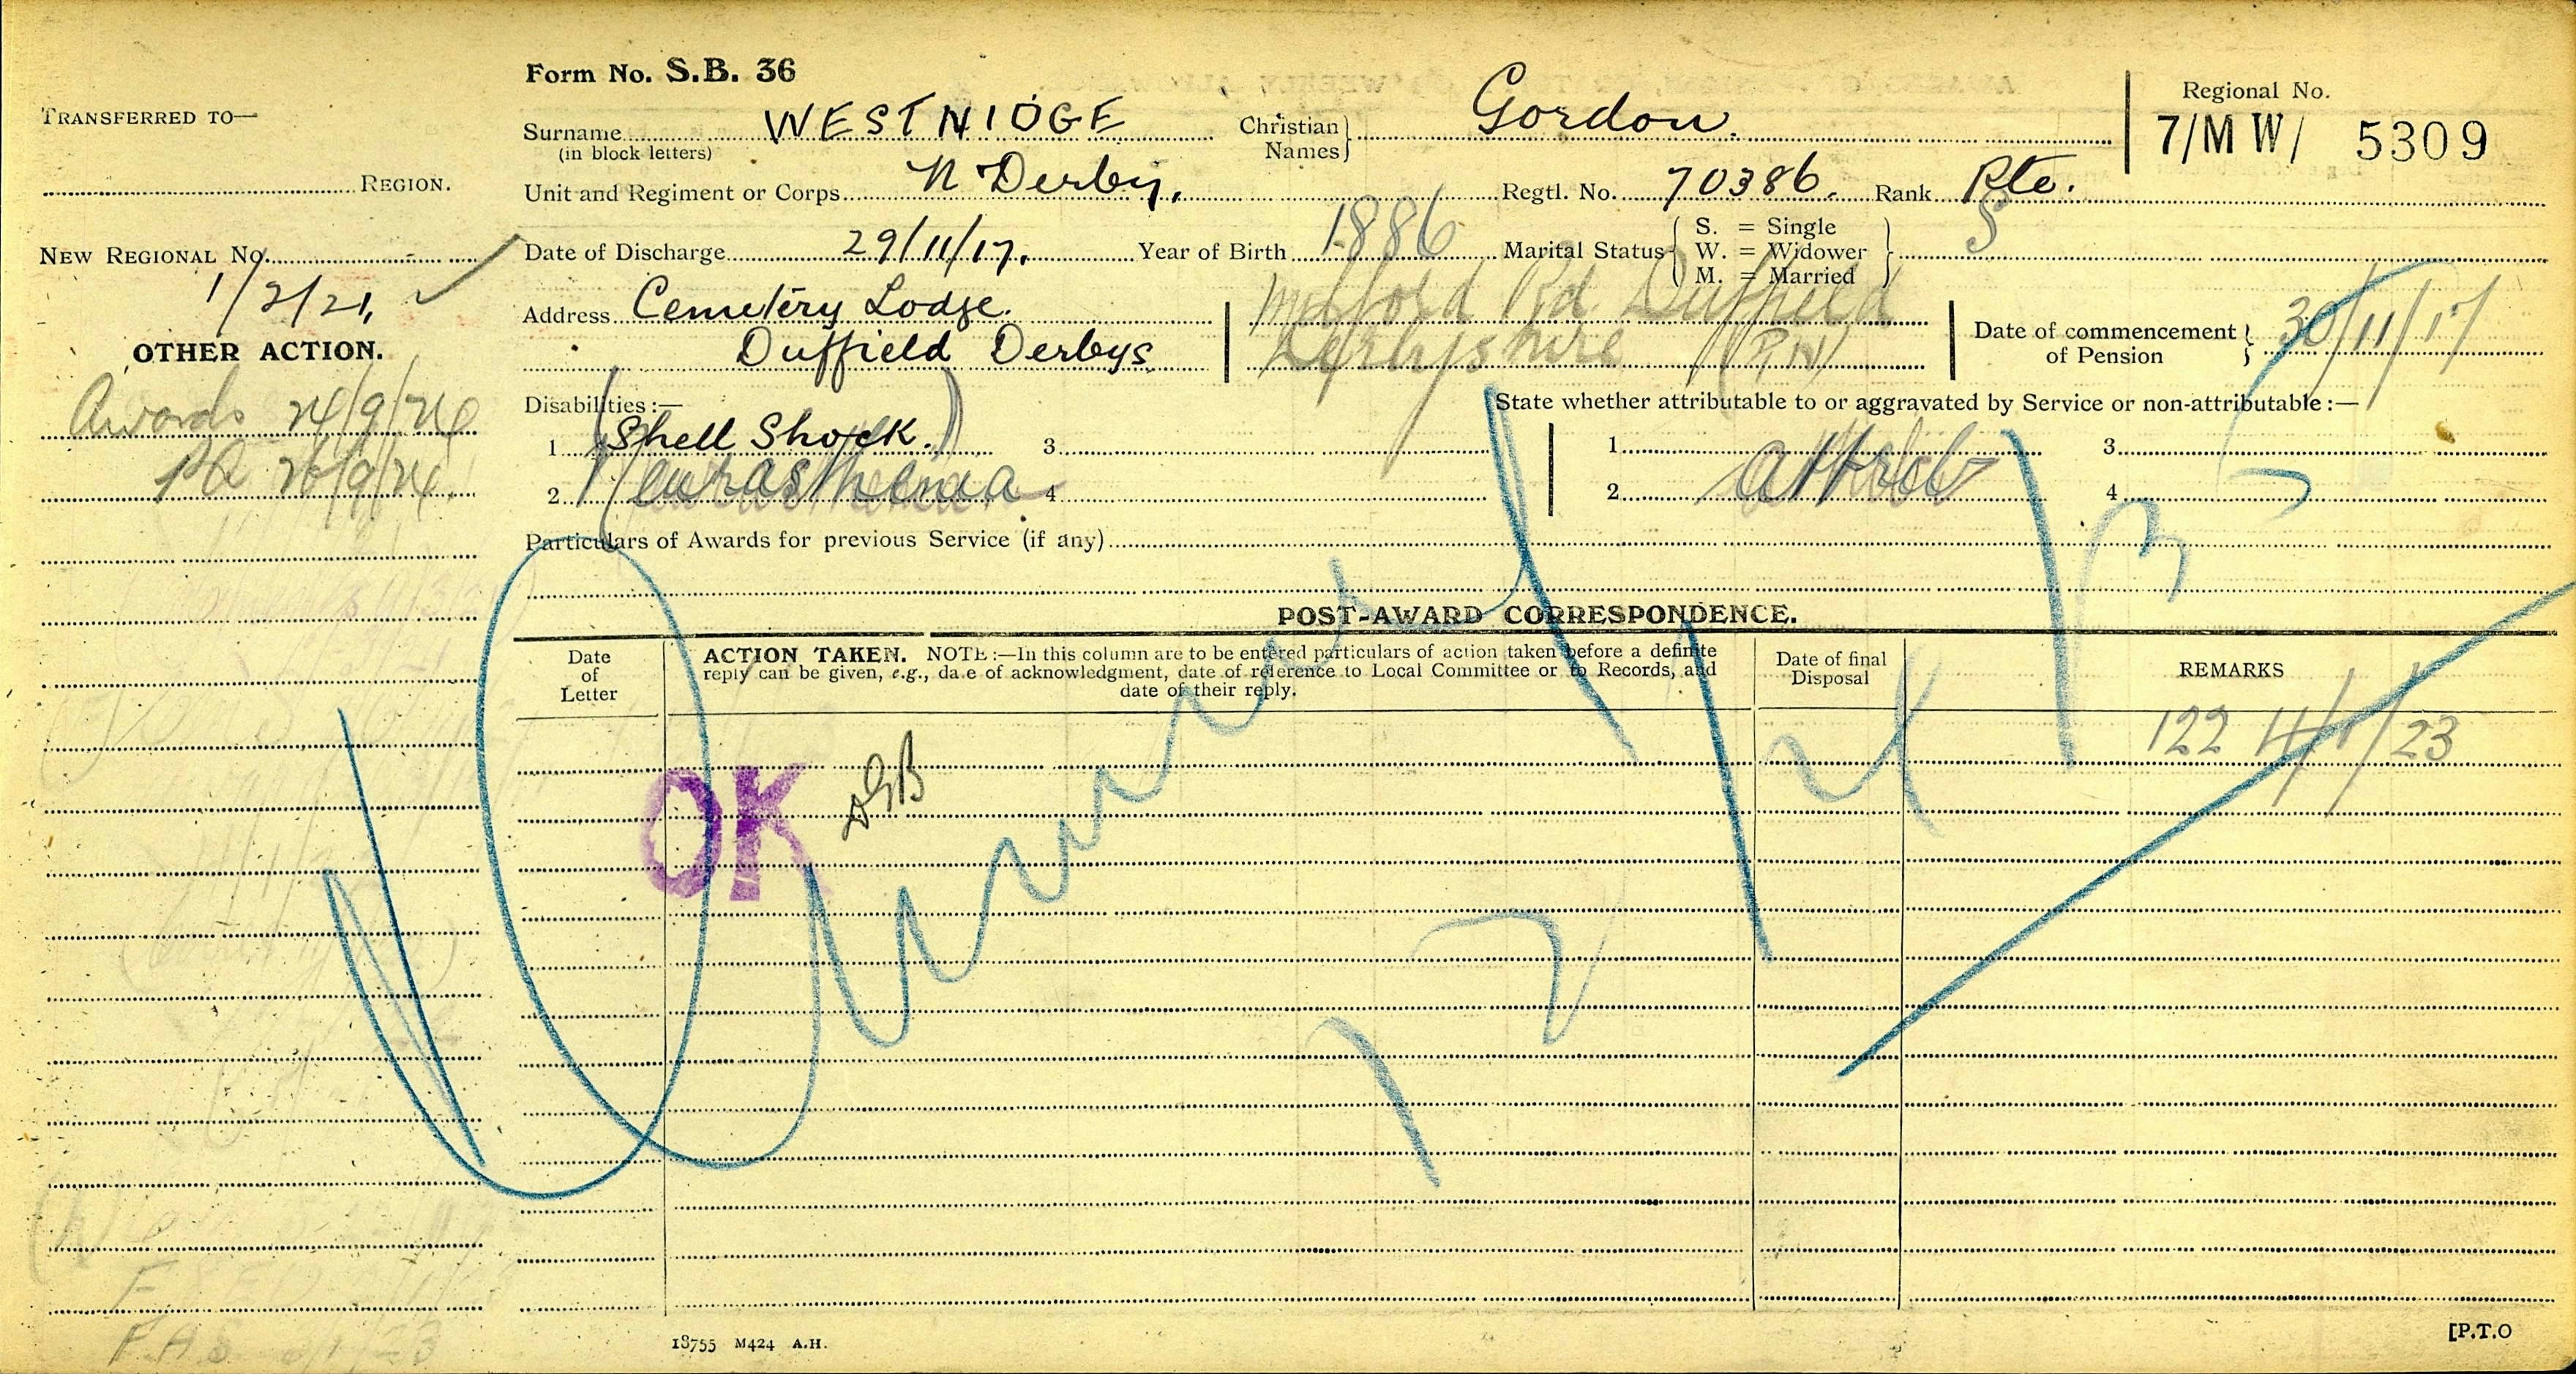 Form No. S.B. 36
TRANSFERRED TO—
REGION.
NEW REGIONAL No.
1/2/21,
OTHER ACTION.
Awards 24/9/24
PA 26/9/24
Surname WESTNIDGE
(in block letters)
Christian Names Gordon.
Regional No.
7/MW/ 5309
Unit and Regiment or Corps N Derby, Regtl. No. 70386. Rank Pte.
Date of Discharge 29/11/17. Year of Birth 1886 Marital Status S. = Single W. = Widower M. = Married S
Address Cemetery Lodge.
Duffield Derbys
Milford Rd Duffield
Derbyshire (PN)
Date of commencement of Pension 30/11/17
Disabilities :—
1 (Shell Shock.) 3
2 Neurasthenia 4
State whether attributable to or aggravated by Service or non-attributable :—
1 3
2 attrib 4
Particulars of Awards for previous Service (if any)
POST-AWARD CORRESPONDENCE.
Date of Letter
ACTION TAKEN. NOTE :—In this column are to be entered particulars of action taken before a definite
reply can be given, e.g., date of acknowledgment, date of reference to Local Committee or to Records, and
date of their reply.
Date of final Disposal
REMARKS
122 4/1/23
OK
18755 M424 A.H.
[P.T.O